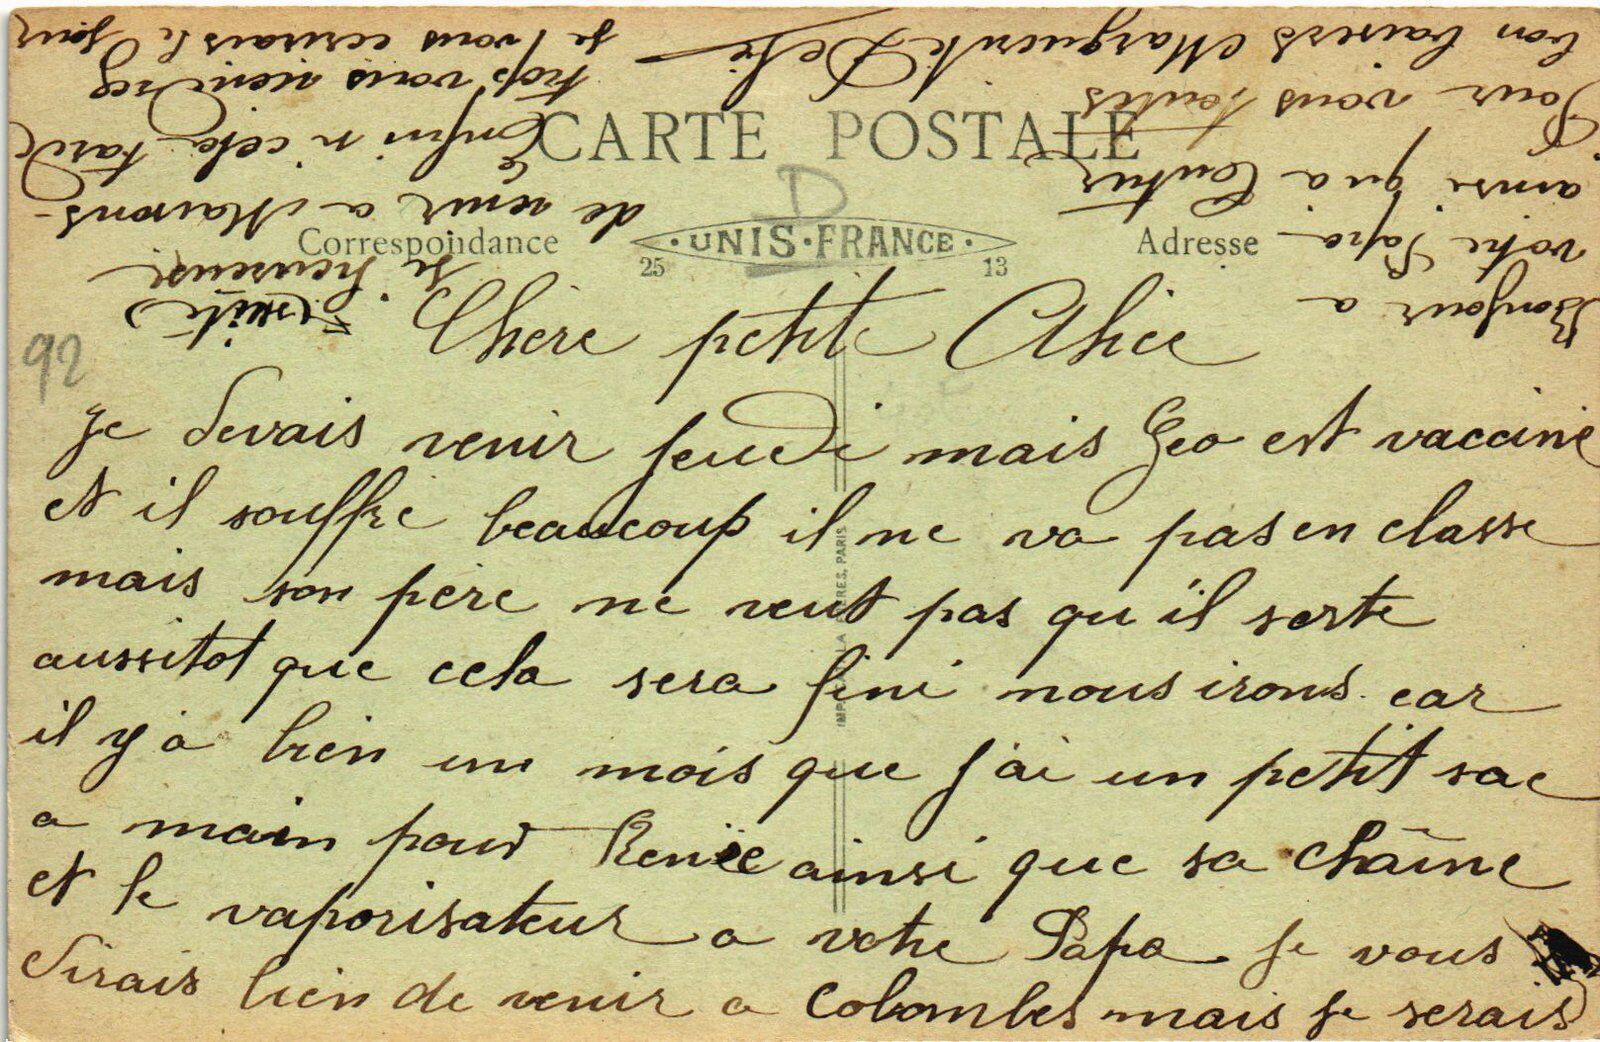 CARTE POSTALE
D
Correspondance
UNIS-FRANCE
25
13
Adresse
92
IMP. PARIS
Chère petite Alice
Je devais venir jeudi mais Geo est vacciné
et il souffre beaucoup il ne va pas en classe
mais son père ne veut pas qu'il sorte
aussitot que cela sera fini nous irons car
il y a bien un mois que j'ai un petit sac
a main pour Renée ainsi que sa chaîne
et le vaporisateur a votre Papa je vous
dirais bien de venir a Colombes mais je serais
suite
si heureuse
de venir a Maisons-
Enfin n cela tarde
trop vous viendrez
je vous ecrirais le jour
Bonjour a
votre Papa
ainsi qu'a
Pour vous toutes
bon baisers Marguerite